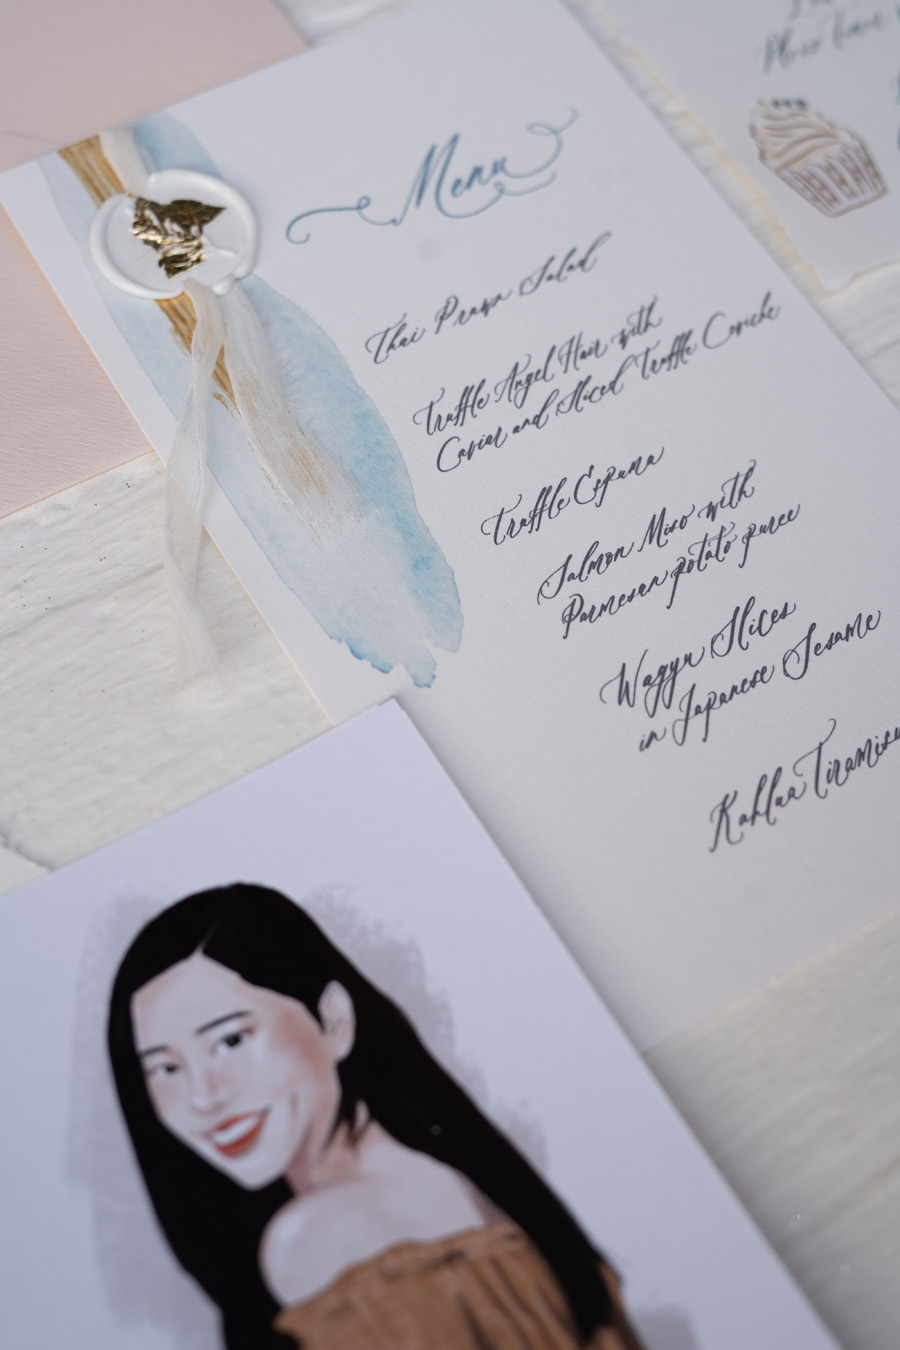 Menu
Thai Prawn Salad
Truffle Angel Hair with
Caviar and Sliced Truffle Ceviche
Truffle Espuma
Salmon Miso with
Parmesan potato puree
Wagyu Slices
in Japanese Sesame
Kahlua Tiramisu
Please have